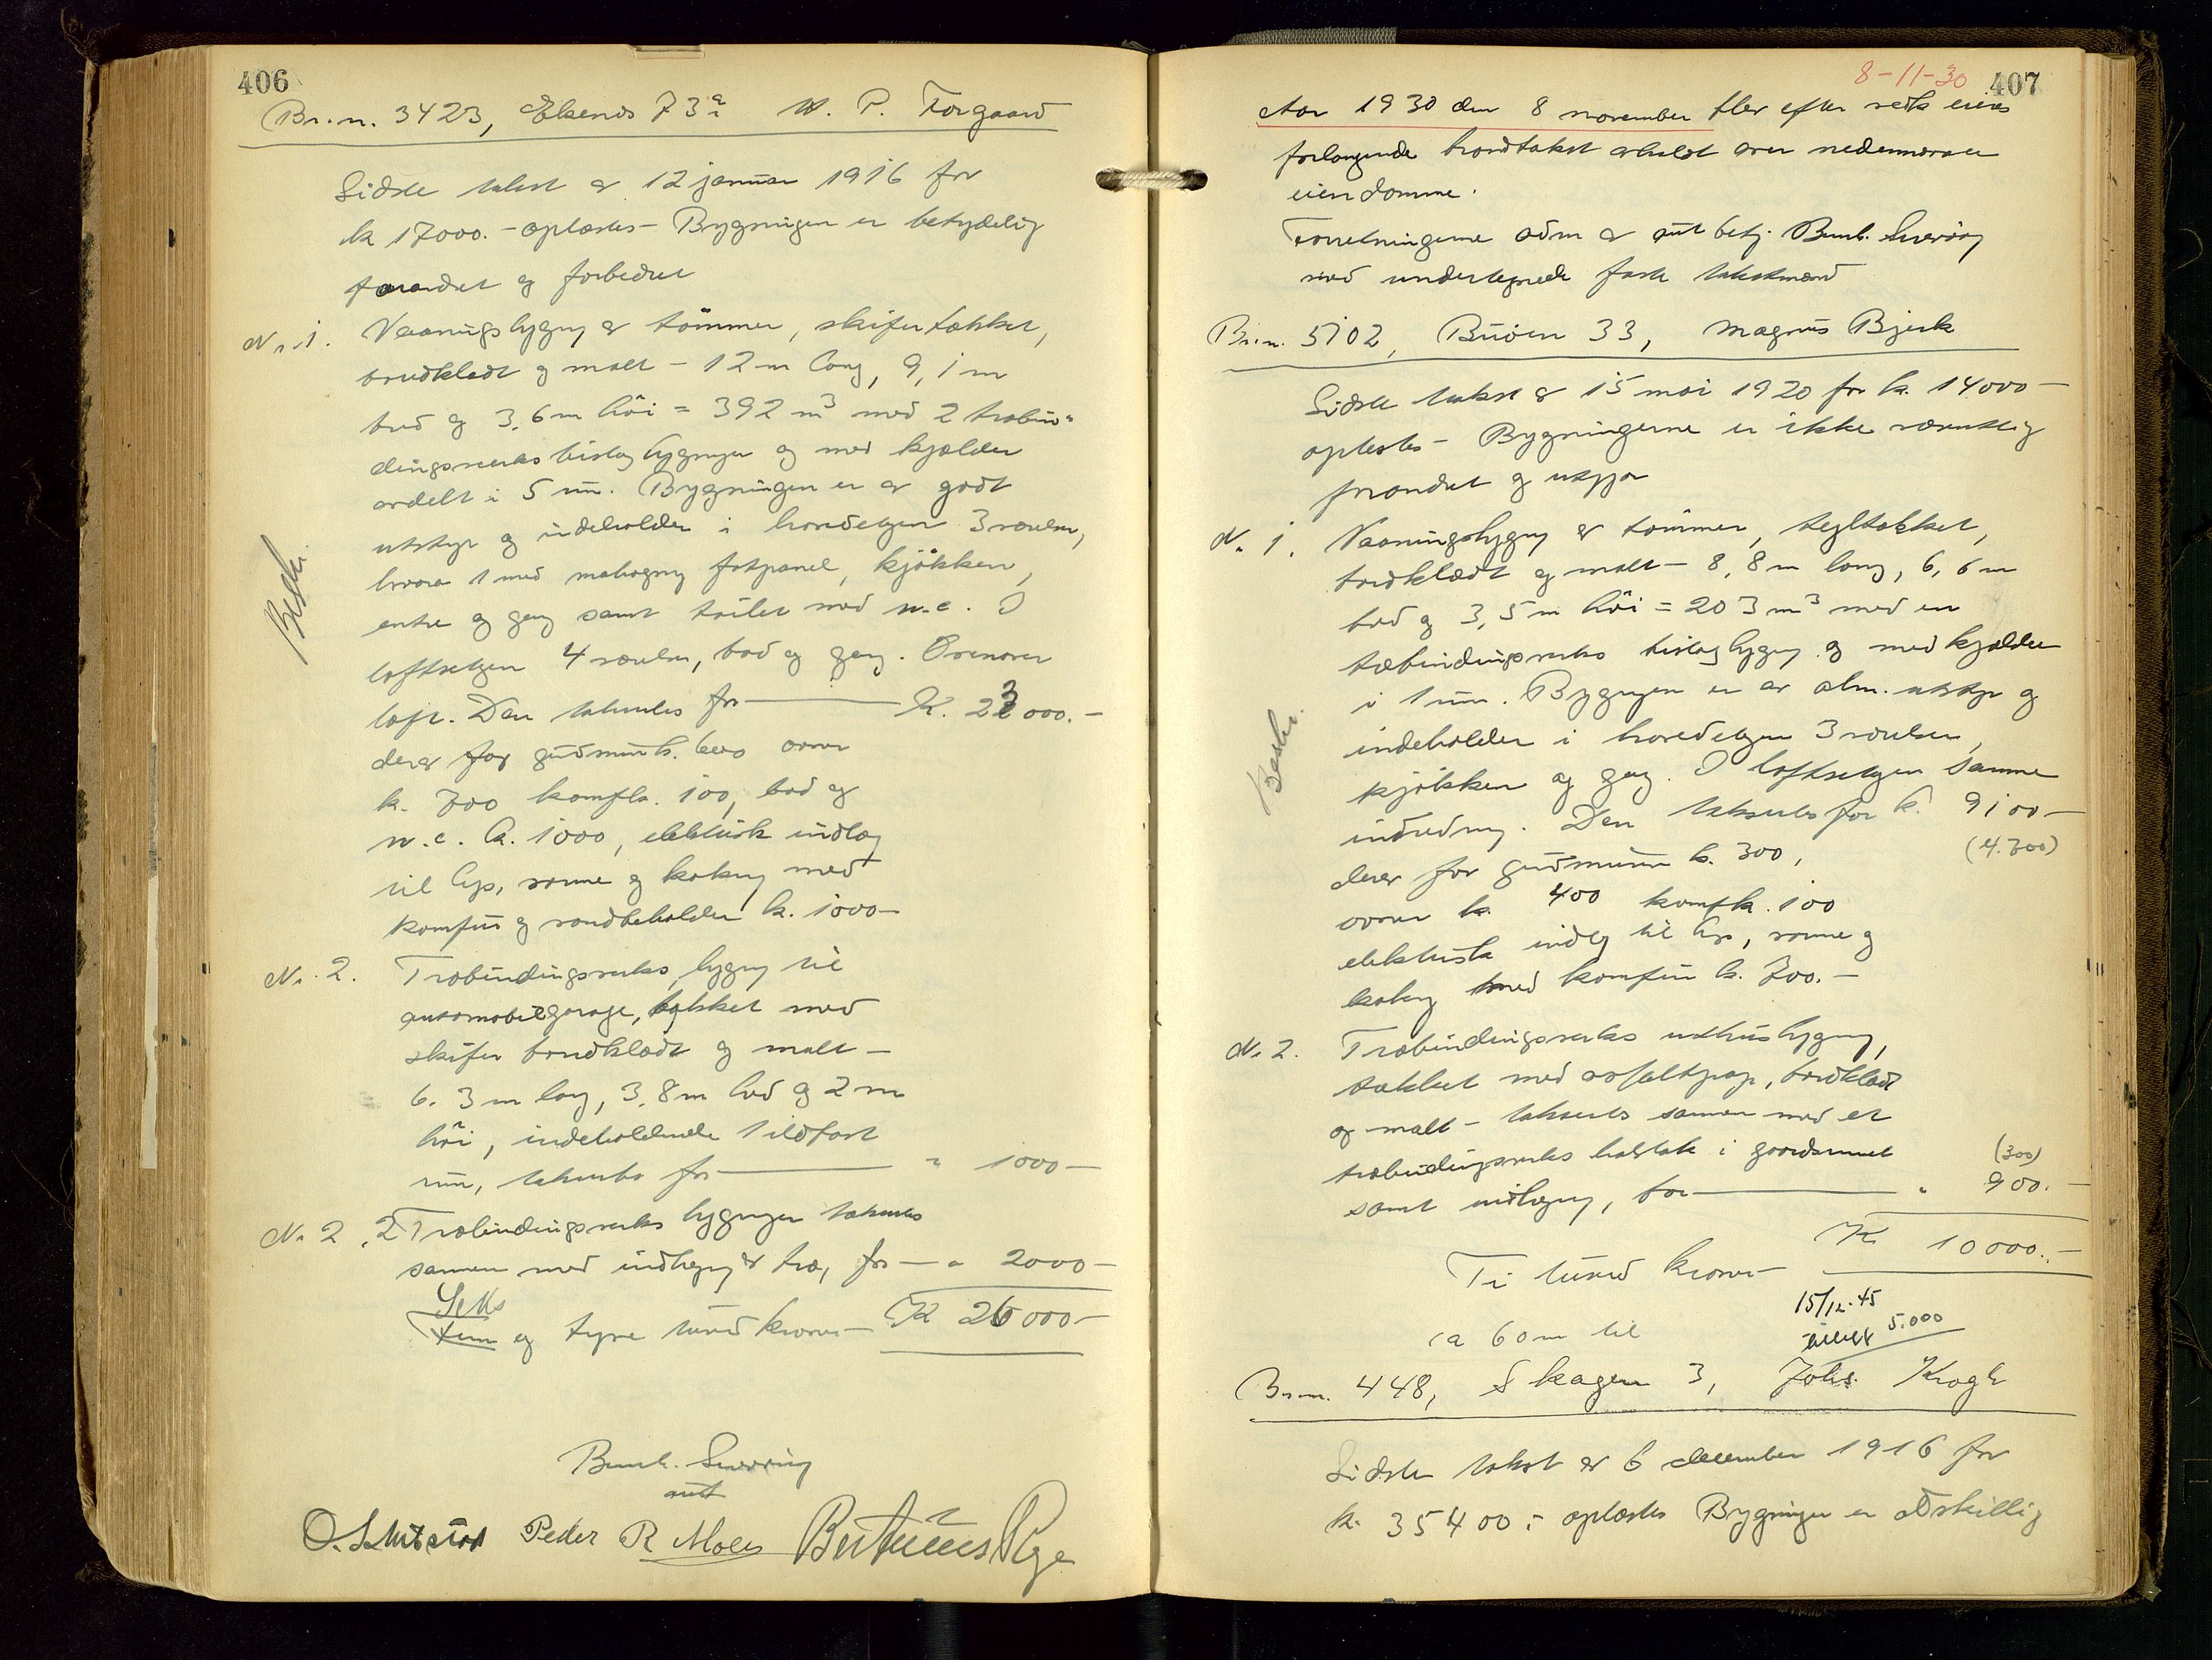 406
Br.n. 3423, Ekenes 73a W. P. Torgaard
Sidste takst er 12 januar 1916 for
k 17000.- oplæstes - Bygningen er betydelig
forandret og forbedret
Nr. 1. Vaaningsbygng er tömmer, skifertækket,
bordklædt og malt - 12 m lang, 9,1 m
bred og 3.6 m höi = 392 m³ med 2 træbin-
dingsverks bislagbygninger og med kjælder
avdelt i 5 rum. Bygningen er av godt
utstyr og indeholder i hovedetagen 3 værelser,
hvorav 1 med mahogny fotpanel, kjökken,
entre og gang samt toilet med w.c. I
loftsetagen 4 værelser, bad og gang. Ovenover
loft. Den takseres for K. 23000.-
derav for grundmur k. ovner
k. 700 komfr. 100, bad og
w.c. k. 1000, elektrisk indlæg
til lys, varme og kokng med
komfur og vandbeholder k. 1000-
Beskr.
Nr. 2. Træbindingsverks bygng til
automobilgarage, tækket med
skifer bordklædt og malt -
6.3 m lang, 3.8 m bred og 2 m
höi, indeholdende 1 ildfast
rum, takseres for " 1000-
Nr. 2, 2 Træbindingsverks bygninger takseres
sammen med indhegng av træ, for - " 2000-
Seks
Fem og tyve tusend kroner - K 26000-
Bernh. Sverdrup
aut
Peder R Moles
407
8-11-30
Aar 1930 den 8 november blev efter vedk eieres
forlangende brandtakst avholdt over nedennævnte
eiendomme.
Forretningerne adm av aut betj. Bernh. Sverdrup
med undertegnede faste takstmænd
Br.n. 5102, Buöen 33, Magnus Bjerk
Sidste takst er 15 mai 1920 for k. 14000-
oplæstes - Bygningerne er ikke væsentlig
forandret og utgjør
Nr. 1. Vaaningsbygng er tömmer, tegltækket,
bordklædt og malt - 8,8 m lang, 6,6 m
bred og 3,5 m höi = 203 m³ med en
træbindingsverks bislagbygng og med kjælder
i 1 rum. Bygningen er av alm. utstyr og
indeholder i hovedetagen 3 værelser,
kjökken og gang. I loftsetagen samme
indredning. Den takseres for k. 9100-
derav for grundmur k. 300, (4.700)
ovner k. 400 komfr. 100
elektrisk indlæg til lys, varme og
kokng med komfur k. 700.-
Beskr.
Nr. 2. Træbindingsverks uthusbygng,
tækket med asfaltpap, bordklædt
og malt - takseres sammen med et
træbindingsverks halvtak i gaardsrummet (300)
samt indhegng, for " 900.-
K 10000.-
Ti tusend kroner
15/12-45
ca 60 m til
tillegg 5.000
Br.n. 448, Skagen 3, Johs. Krogh
Sidste takst er 6 december 1916 for
k. 35400.- oplæstes Bygningen er adskillig